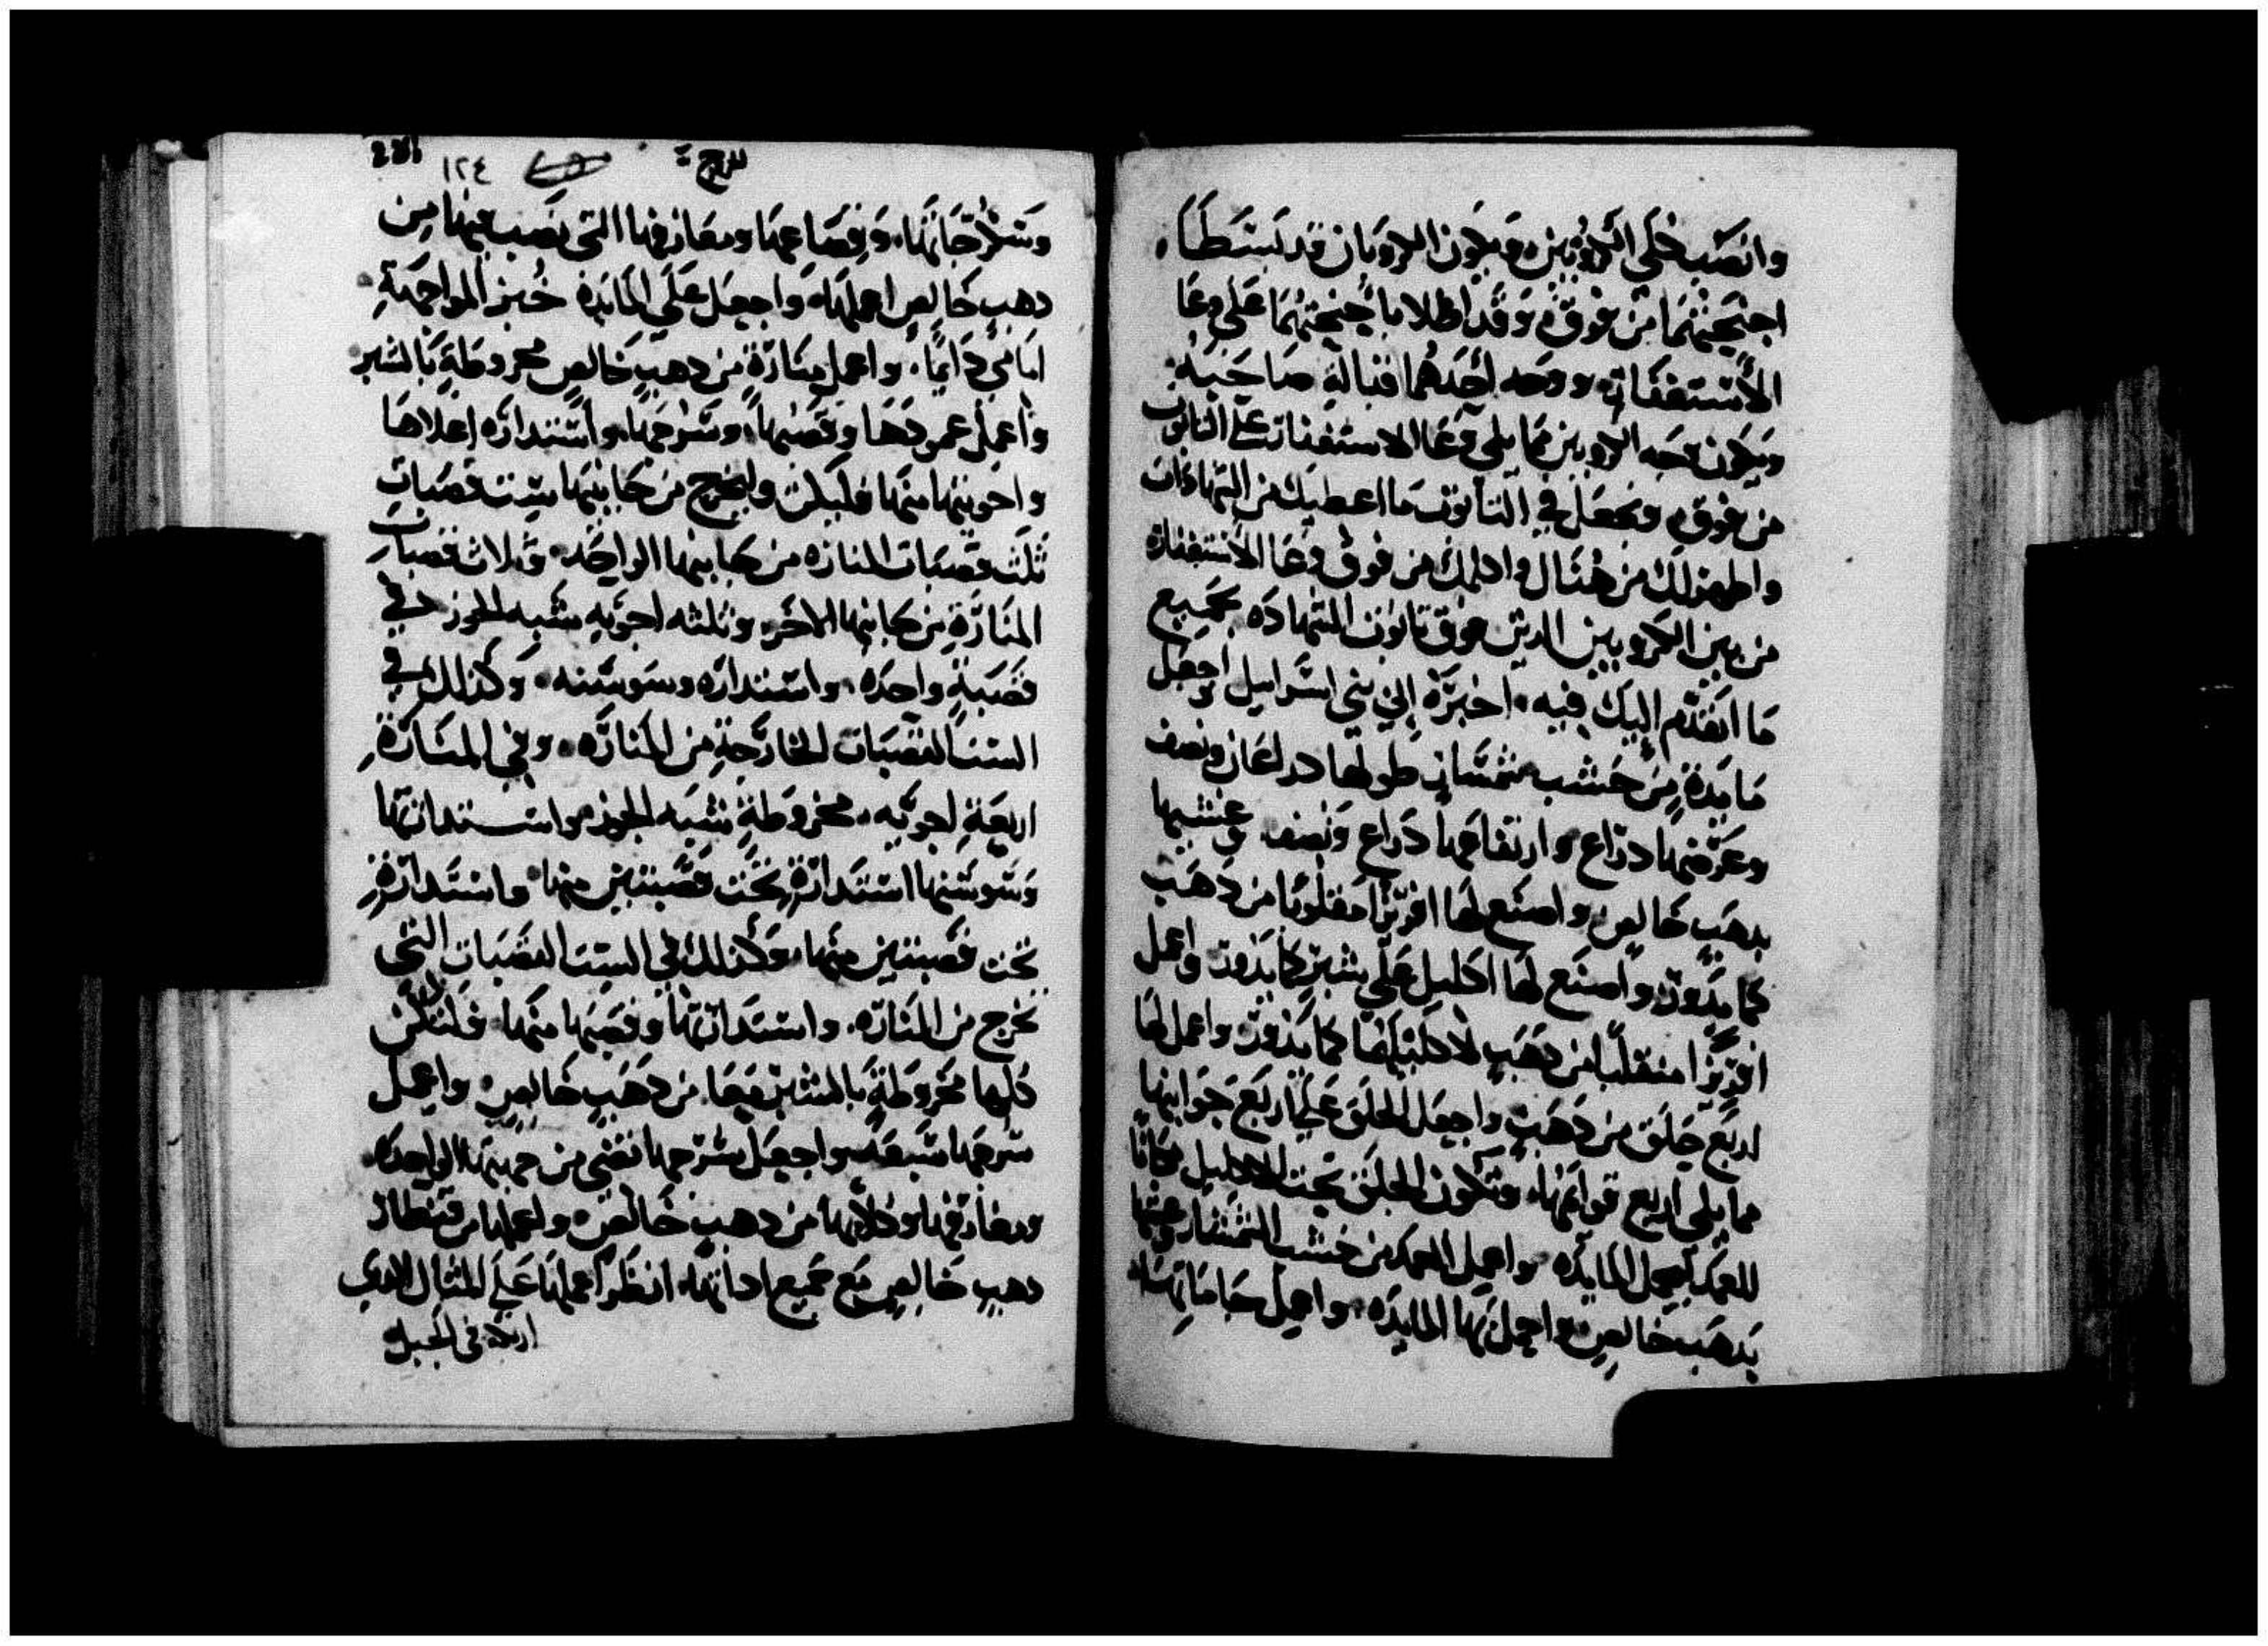 وانصب خلي الكروبين ويكون الكروبان قد بسطا
اجنحتهما من فوق وقد اظلا باجنحتهما على وعا
الاستغفات ووجه احدهما قبالة صاحبه
ويكون وجه الكروبين مما يلي وعا الاستغفات على التابوت
من فوق وتجعل في التابوت ما اعطيك من الشهادات
واظهر لك من هناك واكلمك من فوق وعا الاستغفاره
من بين الكروبيين الدين فوق تابوت الشهاده بجميع
ما اتقدم اليك فيه اخبره الي بني اسرايل واجعل
مايدة من خشب شمشار طولها دراعان ونصف
وعرضها دراع وارتفاعها دراع ونصف وغشيها
بدهب خالص واصنع لها افريزا مفلوبا من دهب
كما يدور واصنع لها اكليل على شبر كما يدور واعمل
افريزا منقلبا من دهب لاكليلها كما يدور واعمل لها
اربع حلق من دهب واجعل الحلق على اربع جوانبها
مما يلي اربع قوايمها وتكون الحلق تحت الاكليل مكانا
للعمد لحمل المايده واعمل العمد من خشب الشمشار وغشها
بدهب خالص واحمل بها المايده واعمل جاماتها
للروج
١٢٤
وسكرجاتها وقصاعها ومغارفها التي تصب بها من
دهب خالص اعملها واجعل على المايدة خبز المواجهة
امامي دايما واعمل منارة من دهب خالص مخروطة بالشبر
واعمل عمودها وقصبها وسرجها واستداره اعلاها
واحويتها منها فليكن وليخرج من جانبيها ست قصبات
ثلث قصبات المناره من جانبها الواحد وثلاث قصبات
المنارة من جانبها الاخر وثلثه احويه شبه الجوز في
قصبة واحده واستداره وسوسنه وكذلك في
الست القصبات الخارجة من المناره وفي المنارة
اربعة احويه مخروطة شبه الجوز واستداراتها
وسوسنها استدارة تحت قصبتين منها واستدارة
تحت قصبتين منها وكذلك في الست القصبات التي
تخرج من المناره واستداراتها وقصبها منها فلتكن
كلها مخروطة بالشبر جميعا من دهب خالص واعمل
سرجها سبعة واجعل سرجها تضي من جهتها الواحده
ومغارفها وكلاليبها من دهب خالص واعملها من قنطار
دهب خالص مع جميع اداتها انظر اعملها على المثال الدي
اريته في الجبل